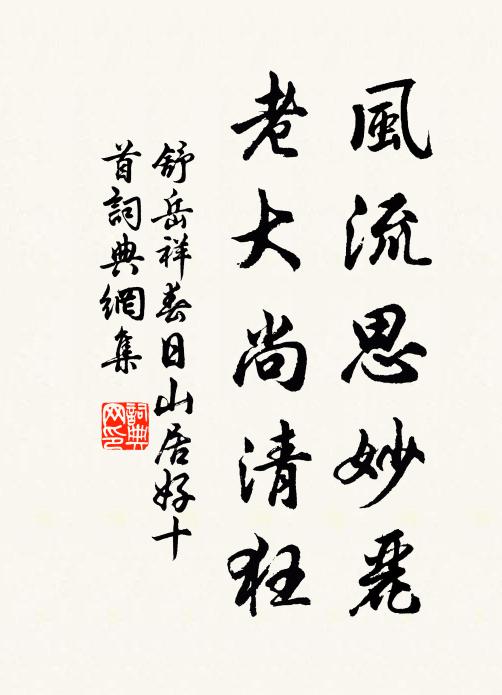 風流思妙麗
老大尚清狂
舒岳祥春日山居好十
首詞典網集
詞典
网印